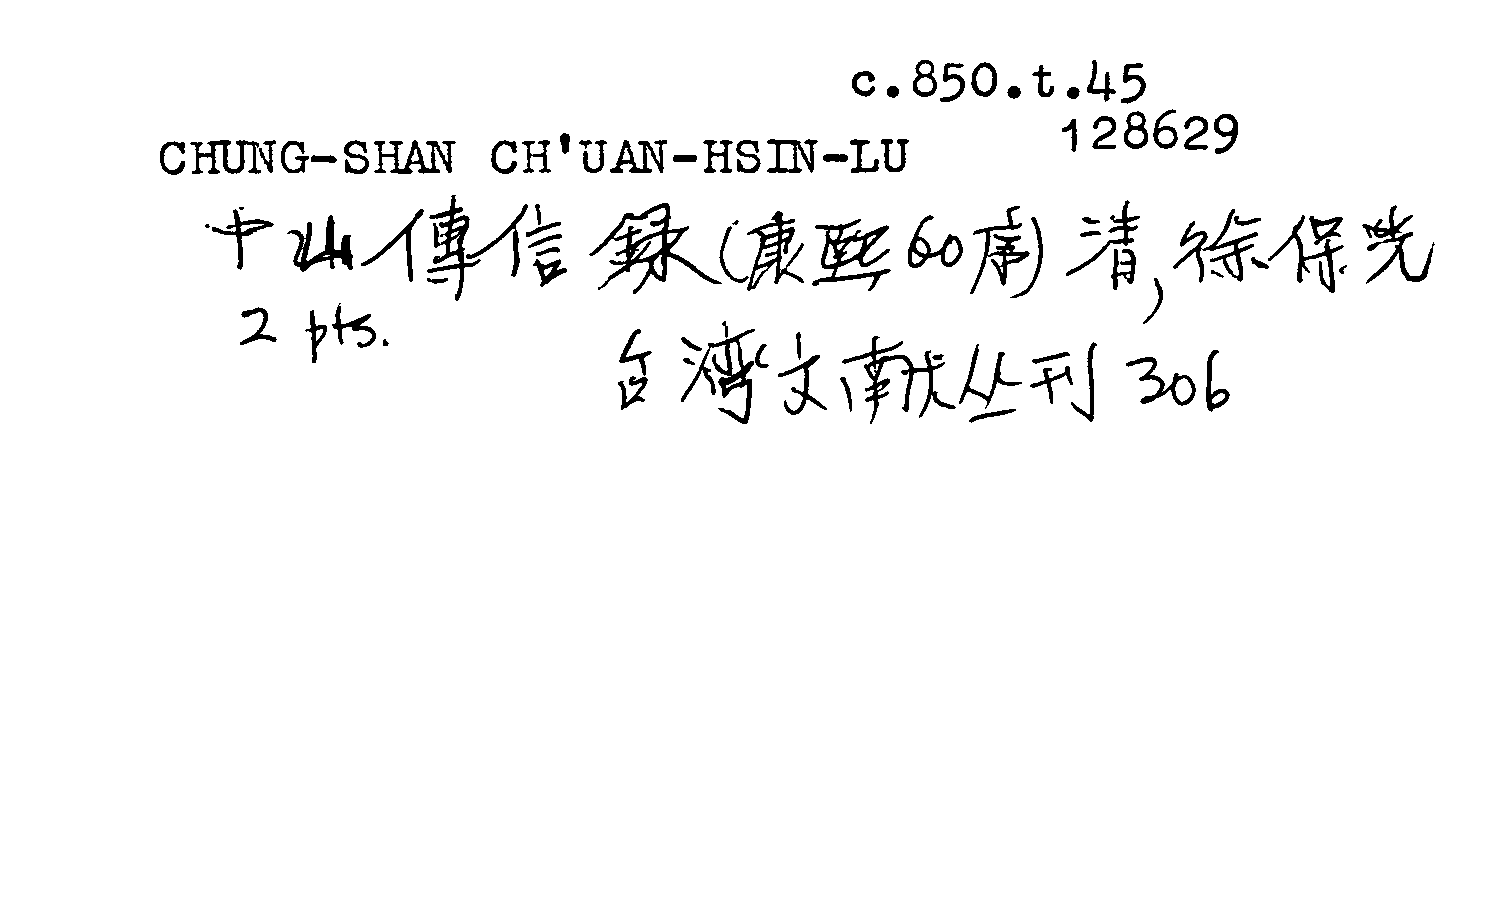 c.850.t.45
128629
CHUNG-SHAN CH'UAN-HSIN-LU
中山傳信録(康熙60序)清,徐保光
2 pts.
台灣文献丛刊 306